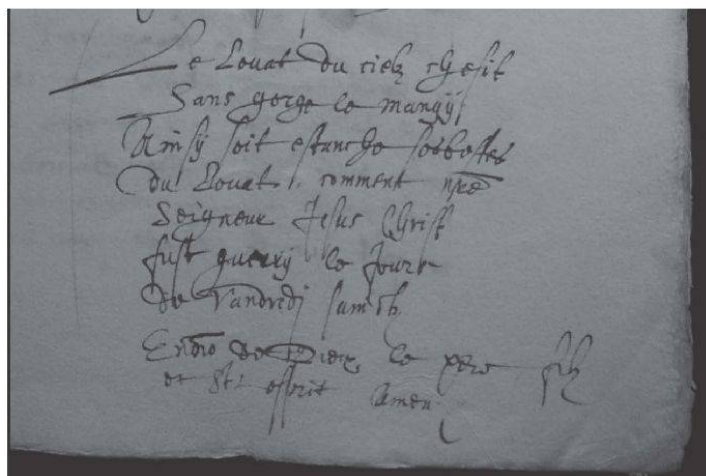 Le Louat du cielz chesit
Sans gorge le mangij
Ainsy soit estanche
du Louat, comment nre
Seigneur Jesus Christ
fust guerry le Jour
de Vandredj sainctz
de Dieu le pere filz
et St esprit Amen